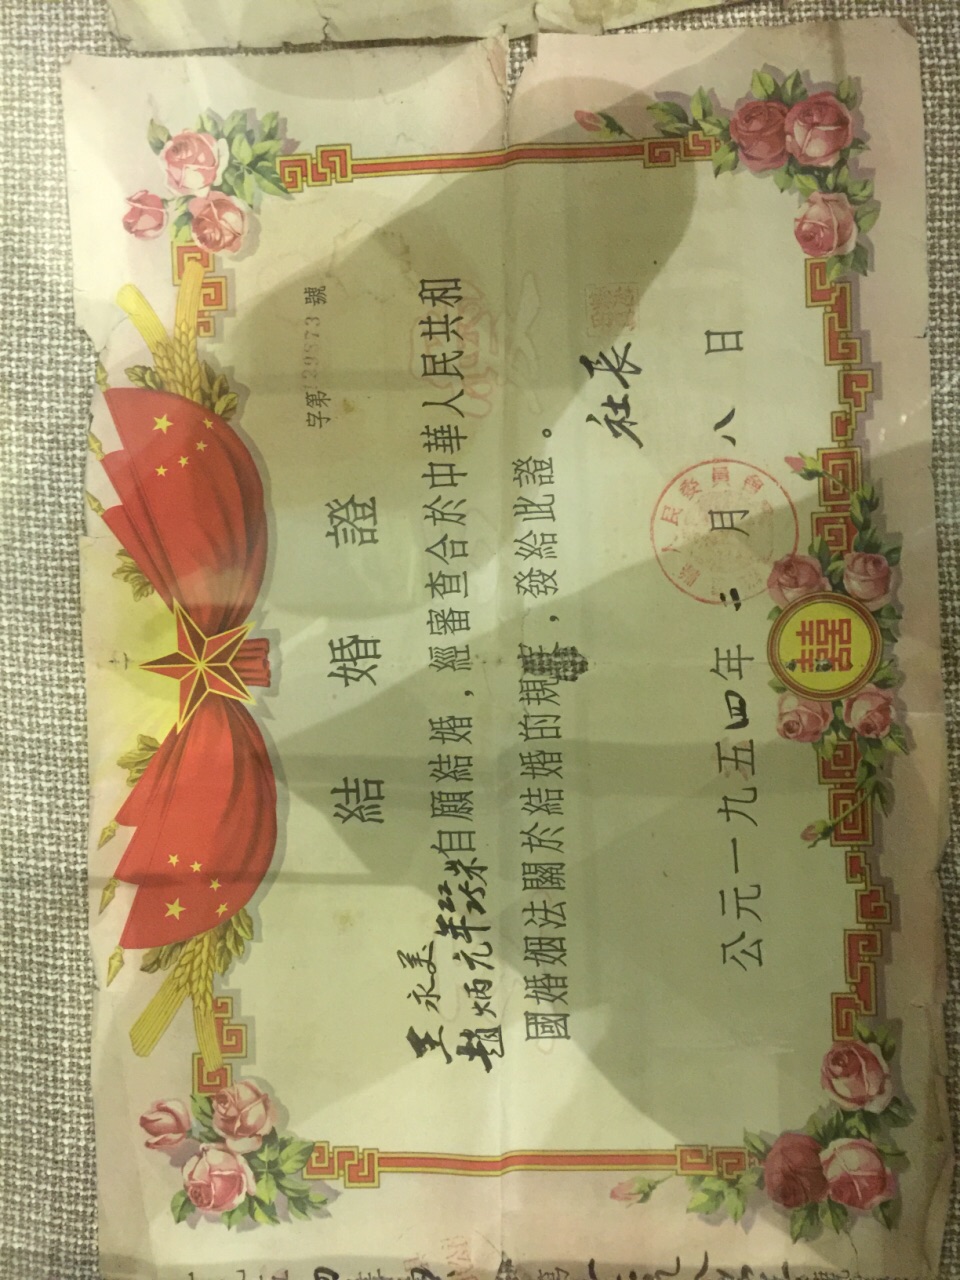 字第139873號
結婚證
王永美
趙炳元年 歲自願結婚，經審查合於中華人民共和
國婚姻法關於結婚的規定，發給此證。
社長
公元一九五四年二月八日
人民委員會
囍